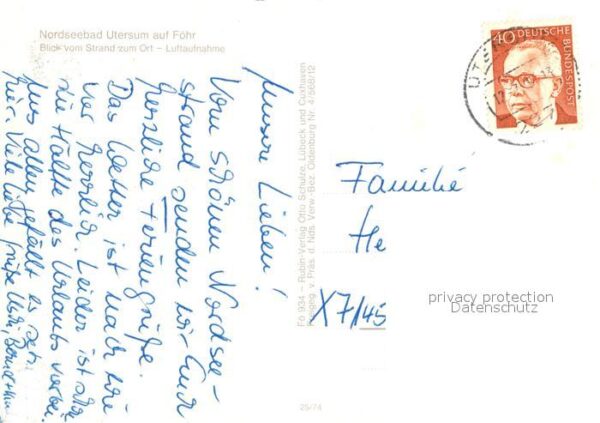 Nordseebad Utersum auf Föhr
Blick vom Strand zum Ort – Luftaufnahme
Unsere Lieben!
Vom schönen Nordsee-
strand senden wir Euch
herzliche Feriengrüße.
Das Wetter ist nach wie
vor herrlich. Leider ist schon
die Hälfte des Urlaubs vorbei.
Uns allen gefällt es sehr
hier. Viele liebe Grüße
Fö 934 – Rubin-Verlag Otto Schulze, Lübeck und Cuxhaven
Freigeg. v. Präs. d. Nds. Verw.-Bez. Oldenburg Nr. 4/566/12
25/74
40 DEUTSCHE
BUNDESPOST
Familie
He
X7/45
privacy protection
Datenschutz